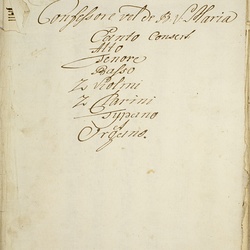 Confessore vel de B. V. Maria
Canto Concert
Alto
Tenore
Basso
2 Violini
2 Clarini
Tympano
Organo.